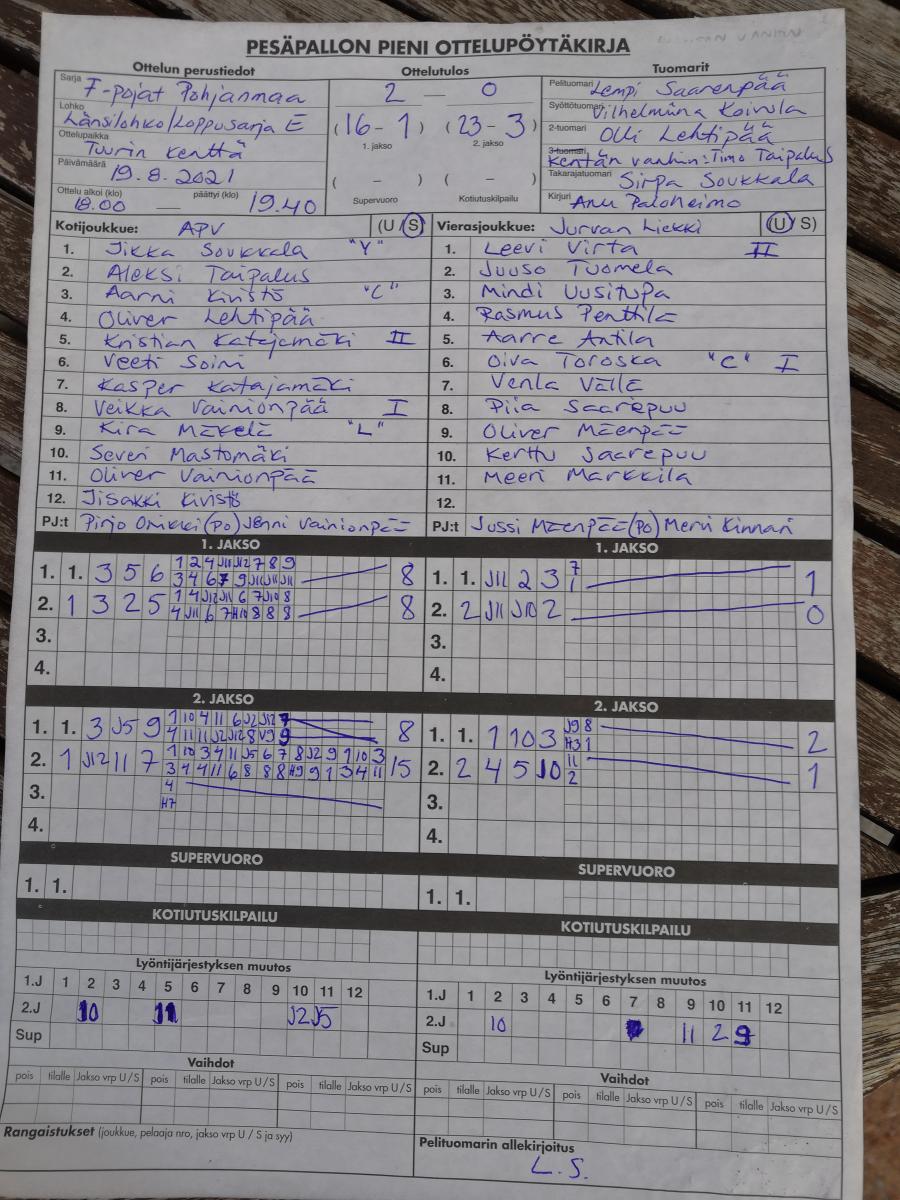 PESÄPALLON PIENI OTTELUPÖYTÄKIRJA
Ottelun perustiedot Ottelutulos Tuomarit
Sarja F-pojat Pohjanmaa
Lohko Länsilohko/Loppusarja E
Ottelupaikka Tuurin kenttä
Päivämäärä 19.8.2021
Ottelu alkoi (klo) 18.00 — päättyi (klo) 19.40
2 — 0
(16 - 1) (23 - 3)
1. jakso 2. jakso
( - ) ( - )
Supervuoro Kotiutuskilpailu
Pelituomari Lempi Saarenpää
Syöttötuomari Vilhelmiina Koivula
2-tuomari Olli Lehtipää
3-tuomari Kentän vanhin: Timo Taipalus
Takarajatuomari Sirpa Soukkala
Kirjuri Anu Paloheimo
Kotijoukkue: APV (U S)
1. Jikka Soukkala "Y"
2. Aleksi Taipalus
3. Aarni Kivistö "C"
4. Oliver Lehtipää
5. Kristian Katajamäki II
6. Veeti Soini
7. Kasper Katajamäki
8. Veikka Vainionpää I
9. Kira Mäkelä "L"
10. Severi Mastomäki
11. Oliver Vainionpää
12. Jisakki Kivistö
PJ:t Pirjo Orikki (PO) Jenni Vainionpää
Vierasjoukkue: Jurvan Liekki (U S)
1. Leevi Virta II
2. Juuso Tuomela
3. Mindi Uusitupa
4. Rasmus Penttilä
5. Aarre Antila
6. Oiva Toroska "C" I
7. Venla Vällä
8. Piia Saarepuu
9. Oliver Mäenpää
10. Kerttu Saarepuu
11. Meeri Markkila
12.
PJ:t Jussi Mäenpää (PO) Mervi Kinnari
1. JAKSO
1. 1. 3 5 6 1 2 4 J11 J12 7 8 9 8
3 4 6 7 9 J11 J11 J11
2. 1 3 2 5 1 4 J12 J11 6 7 J10 8 8
4 J11 6 7 H10 8 8 8
3.
4.
1. JAKSO
1. 1. J11 2 3 7 1
1
2. 2 J11 J10 2 0
3.
4.
2. JAKSO
1. 1. 3 J5 9 1 10 4 11 6 J2 J12 7 8
4 11 11 J2 J12 8 V9 9
2. 1 J12 11 7 1 10 3 4 11 J5 6 7 8 J2 9 1 10 3 15
3 4 4 11 6 8 8 8 H9 9 1 3 4 11
3. 4
H7
4.
2. JAKSO
1. 1. 1 10 3 J9 8 2
H3 1
2. 2 4 5 J0 11 1
2
3.
4.
SUPERVUORO
1. 1.
SUPERVUORO
1. 1.
KOTIUTUSKILPAILU
KOTIUTUSKILPAILU
Lyöntijärjestyksen muutos
1.J 1 2 3 4 5 6 7 8 9 10 11 12
2.J 10 11 J2 J5
Sup
Lyöntijärjestyksen muutos
1.J 1 2 3 4 5 6 7 8 9 10 11 12
2.J 10 11 2 9
Sup
Vaihdot
pois tilalle Jakso vrp U/S pois tilalle Jakso vrp U/S pois tilalle Jakso vrp U/S
Vaihdot
pois tilalle Jakso vrp U/S pois tilalle Jakso vrp U/S pois tilalle Jakso vrp U/S
Rangaistukset (joukkue, pelaaja nro, jakso vrp U / S ja syy)
Pelituomarin allekirjoitus
L.S.